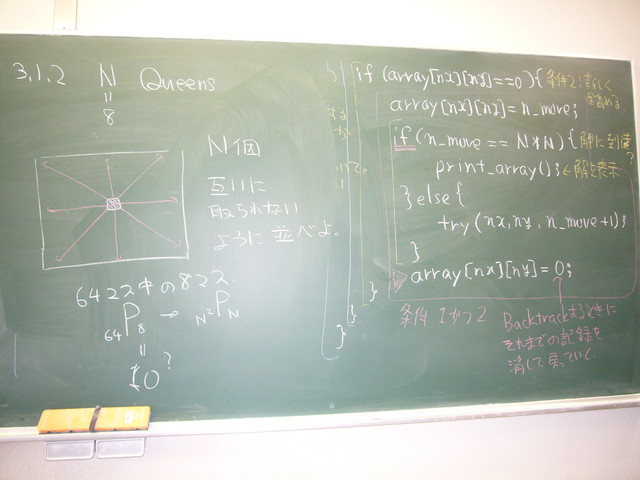 3.1.2 N Queens
8
N個
互いに
取られない
ように並べよ.
64マス中の8マス.
64P8 → N²PN
10?
if (array[nx][ny]==0){
array[nx][ny]=n_move;
if(n_move == N*N){ 解に到達?
print_array(); ←解を表示
}else{
try(nx,ny,n_move+1);
}
array[nx][ny]=0;
}
}
}
条件1かつ2
Backtrackするときに
それまでの記録を
消して戻っていく